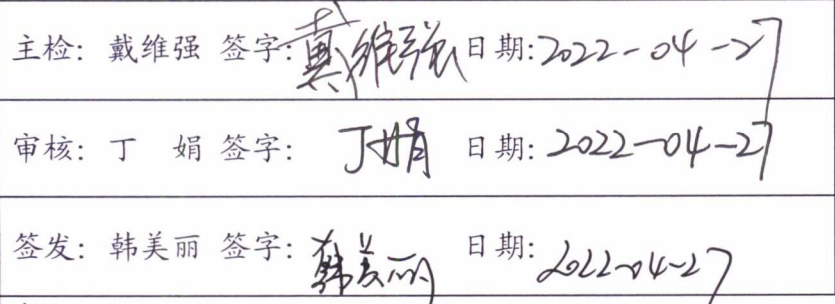 主检：戴维强 签字：戴维强 日期：2022-04-27
审核：丁 娟 签字：丁娟 日期：2022-04-27
签发：韩美丽 签字：韩美丽 日期：2022-04-27